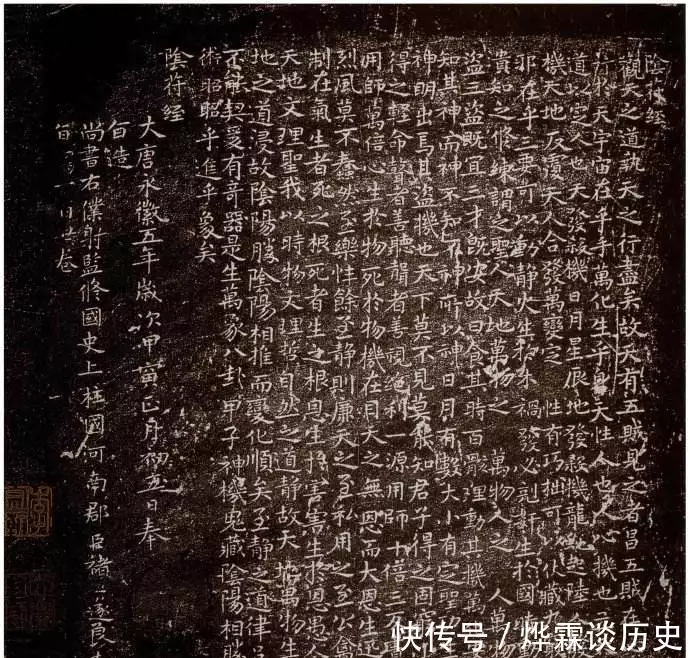 陰符經
觀天之道執天之行盡矣故天有五賊見之者昌五賊在
行於天宇宙在乎手萬化生乎身天性人也人心機也立
道以定人也天發殺機日月星辰地發殺機龍虵起陸人
機天地反覆天人合發萬變之 性有巧拙可以伏藏九
耶在乎三要可以動靜火生於木禍發必剋姧生於國
貴知之修練謂之聖人天地萬物之 萬物人之 人萬
盜三盜既宜三才既安故曰食其時百骸理動其機萬
知其神而神不知不神所以神日月有數大小有定聖功
神明出焉其盜機也天下莫不見莫能知君子得之固窮
得之輕命瞽者善聽聾者善視絕利一源用師十倍三反
用師萬倍心生於物死於物機在目天之無恩而大恩生迅
烈風莫不蠢然至樂性餘至靜則廉天之至私用之至公禽
制在氣生者死之根死者生之根恩生於害害生於恩愚人
天地文理聖我以時物文理哲自然之道靜故天地萬物生
地之道浸故陰陽勝陰陽相推而變化順矣至靜之道律呂
不能契爰有奇器是生萬象八卦甲子神機鬼藏陰陽相勝
術昭昭乎進乎象矣
陰符經
大唐永徽五年歲次甲寅正月初五日奉
旨造
尚書右僕射監修國史上柱國河南郡 臣褚遂良奉
旨 一日 卷
快传号/烨霖谈历史